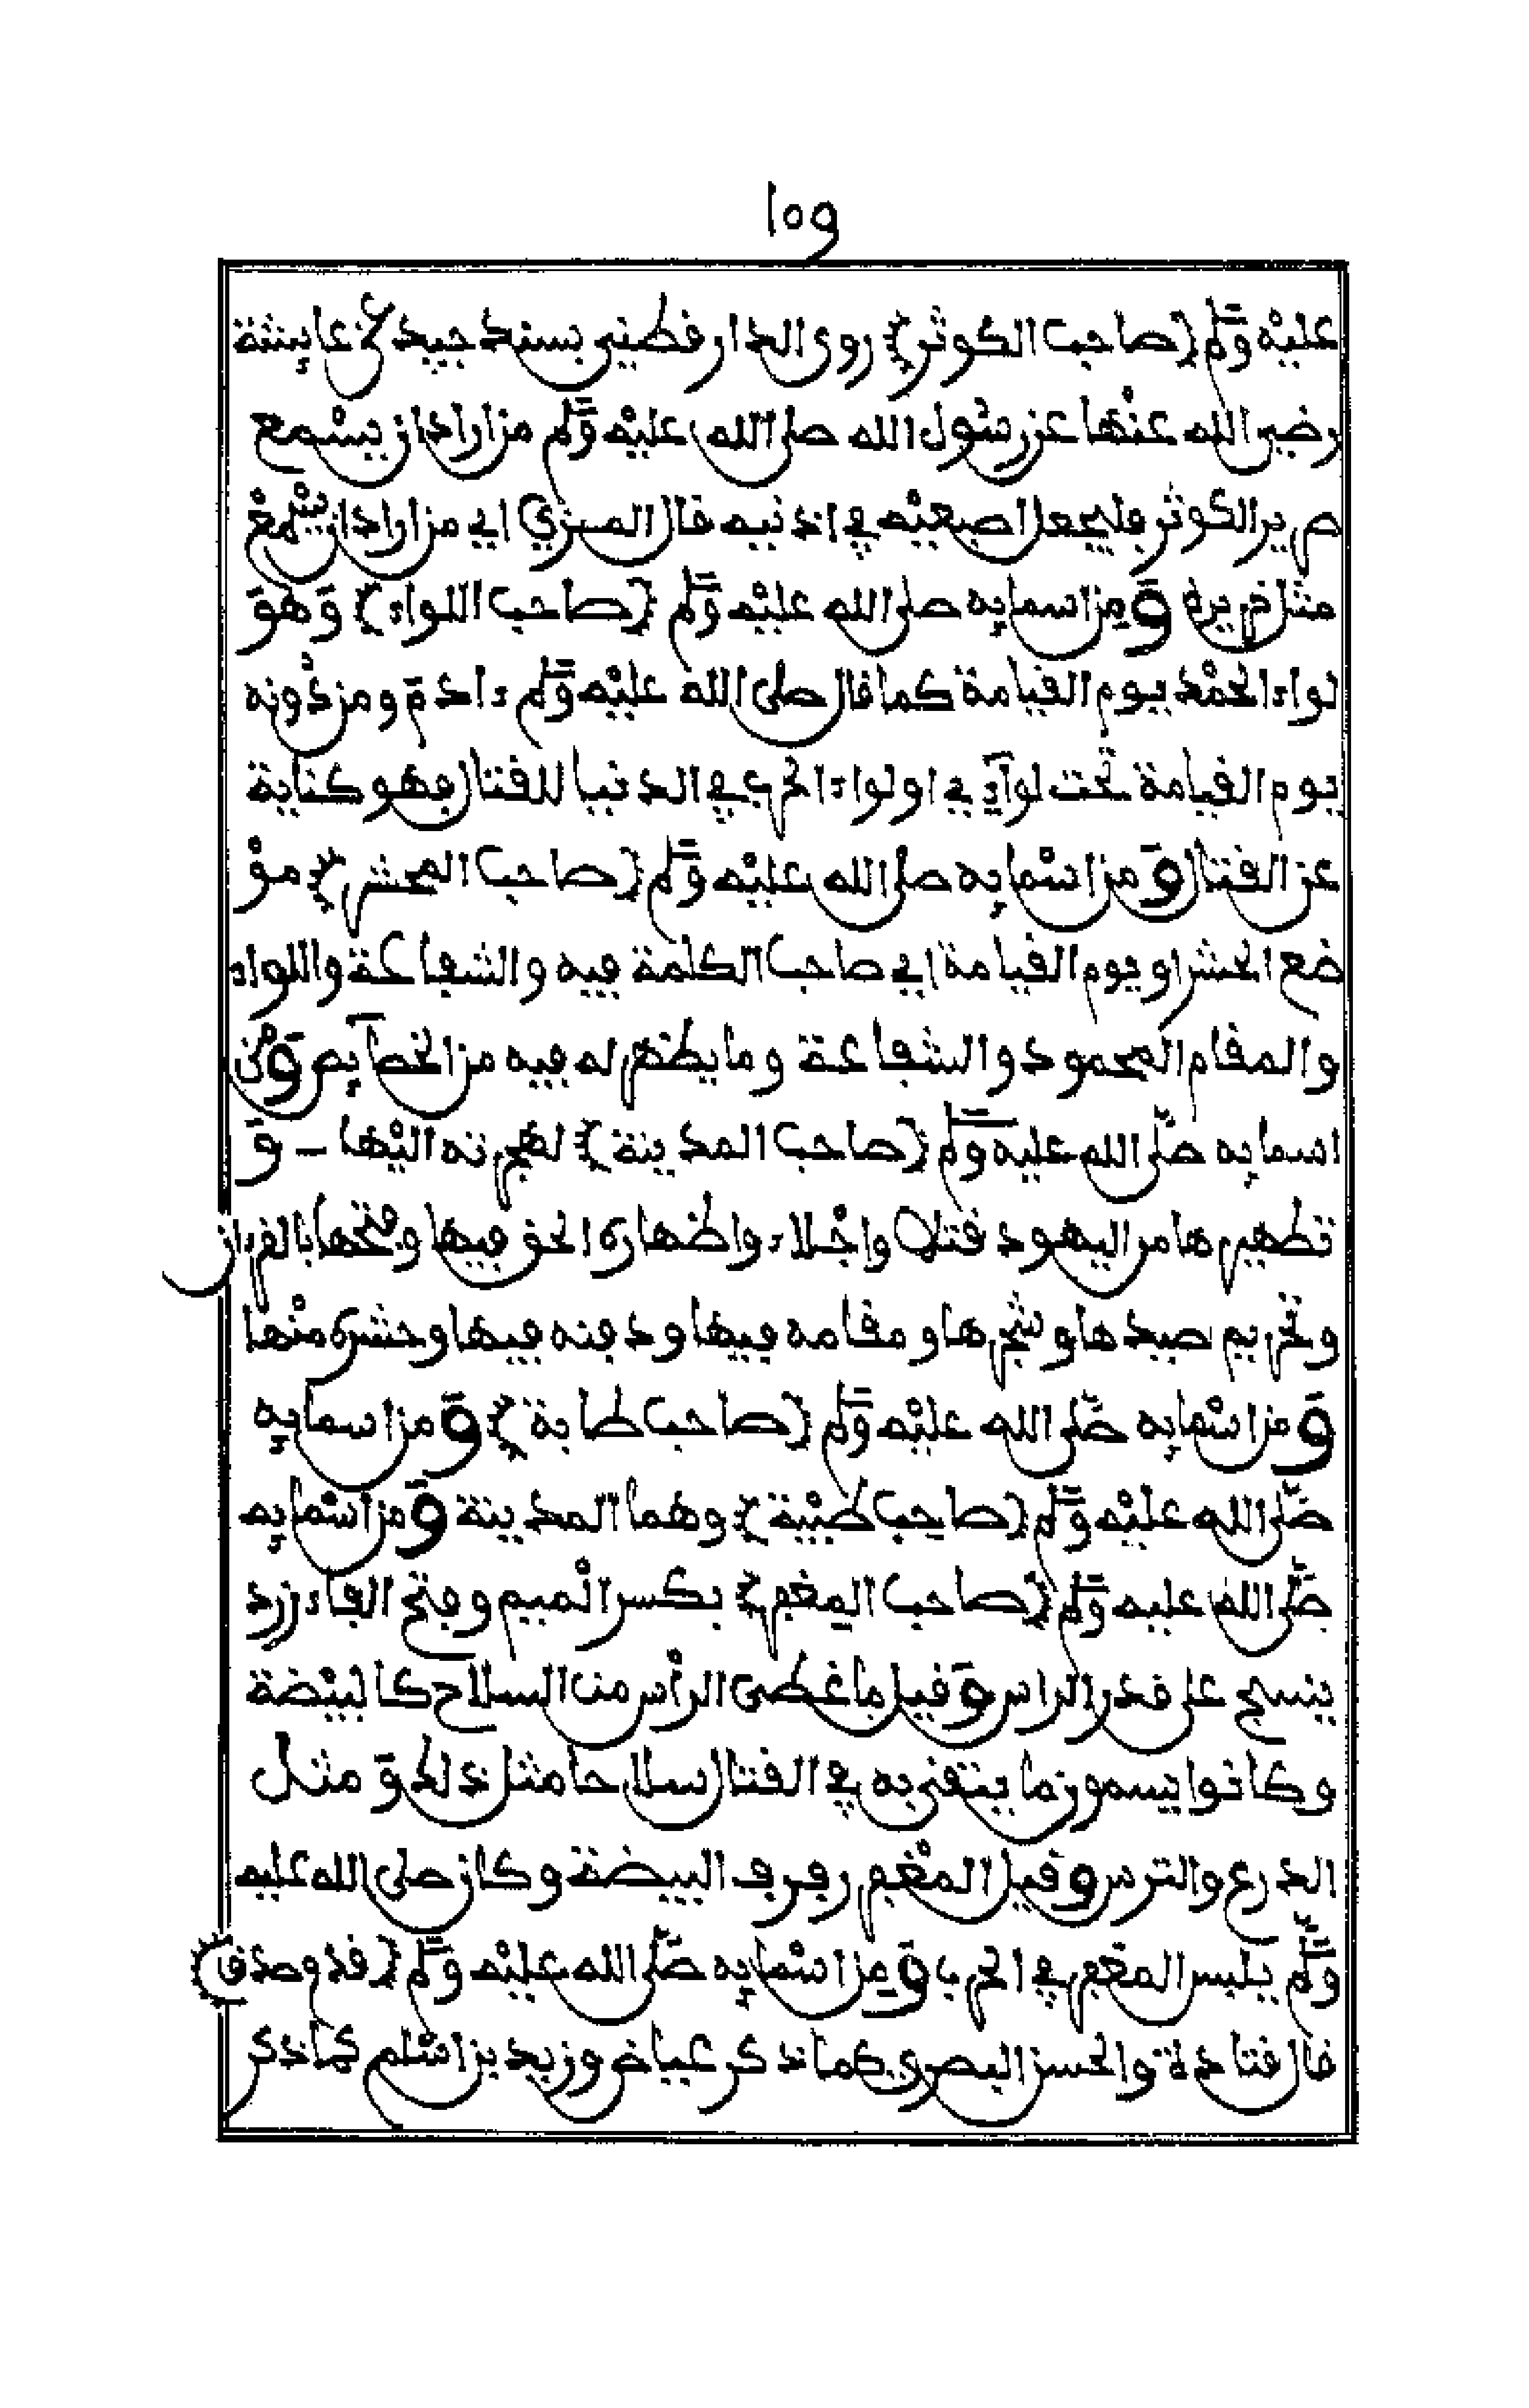 ١٥٩
عليه وسلم (صاحب الكوثر) روى الدارقطني بسند جيد عن عائشة
رضي الله عنها عن رسول الله صلى الله عليه وسلم من اراد ان يسمع
خرير الكوثر فليجعل اصبعيه في اذنيه قال المزي اي من اراد ان يسمع
مثل خريره ومن اسمائه صلى الله عليه وسلم (صاحب اللواء) وهو
لواء الحمد يوم القيامة كما قال صلى الله عليه وسلم ءادم ومن دونه
يوم القيامة تحت لوآءي او لواء الحرب في الدنيا للقتال فهو كناية
عن القتال ومن اسمائه صلى الله عليه وسلم (صاحب المحشر) مو
ضع الحشر او يوم القيامة اي صاحب الكلمة فيه والشفاعة واللواء
والمقام المحمود والشفاعة وما يظهر له فيه من الخصآئص ومن
اسمائه صلى الله عليه وسلم (صاحب المدينة) لهجرته اليها - و
تطهيرها من اليهود قتلا واجلاء واظهاره الحق فيها وفتحها بالقرءان
وتحريم صيدها وشجرها ومقامه فيها ودفنه فيها وحشره منها
ومن اسمائه صلى الله عليه وسلم (صاحب طابة) ومن اسمائه
صلى الله عليه وسلم (صاحب طيبة) وهما المدينة ومن اسمائه
صلى الله عليه وسلم (صاحب المغفر) بكسر الميم وفتح الفاء زرد
ينسج على قدر الراس وقيل ما غطى الرأس من السلاح كالبيضة
وكانوا يسمون ما يتقى به في القتال سلاحا مثل ذلك ومثل
الدرع والترس وقيل المغفر رفرف البيضة وكان صلى الله عليه
وسلم يلبس المغفر في الحرب ومن اسمائه صلى الله عليه وسلم (قدم صدق)
قال قتادة والحسن البصري كما ذكر عياض وزيد بن اسلم كما ذكر